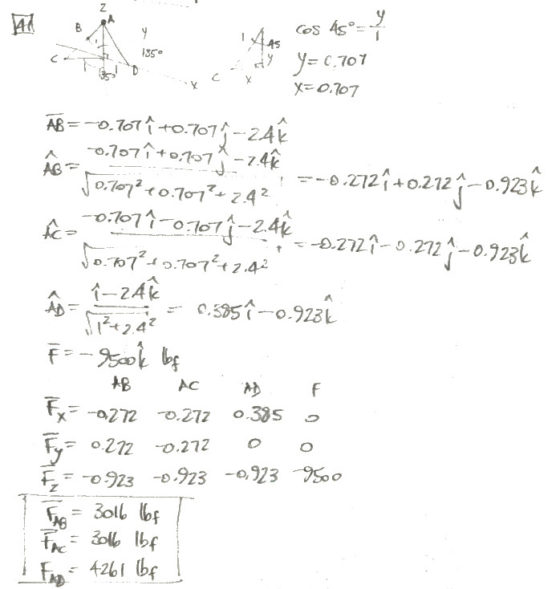 41
Z
A
B
y
135°
C
D
x
1
45
y
C
x
cos 45° = y/1
y = 0.707
x = 0.707
AB = -0.707î + 0.707ĵ - 2.4k̂
ÂB = (-0.707î + 0.707ĵ - 2.4k̂) / √(0.707² + 0.707² + 2.4²) = -0.272î + 0.272ĵ - 0.923k̂
ÂC = (-0.707î - 0.707ĵ - 2.4k̂) / √(0.707² + 0.707² + 2.4²) = -0.272î - 0.272ĵ - 0.923k̂
ÂD = (î - 2.4k̂) / √(1² + 2.4²) = 0.385î - 0.923k̂
F = -9500k̂ lbf
AB AC AD F
Fx = -0.272 -0.272 0.385 0
Fy = 0.272 -0.272 0 0
Fz = -0.923 -0.923 -0.923 -9500
F_AB = 3016 lbf
F_AC = 3016 lbf
F_AD = 4261 lbf